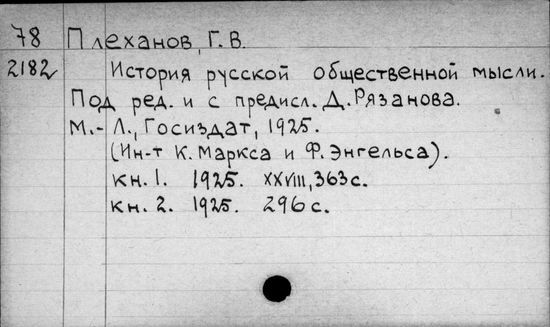 78 Плеханов, Г.В.
2182 История русской общественной мысли.
Под ред. и с предисл. Д. Рязанова.
М.-Л., Госиздат, 1925.
(Ин-т К. Маркса и Ф. Энгельса).
кн. 1. 1925. XXVIII, 363 с.
кн. 2. 1925. 296 с.